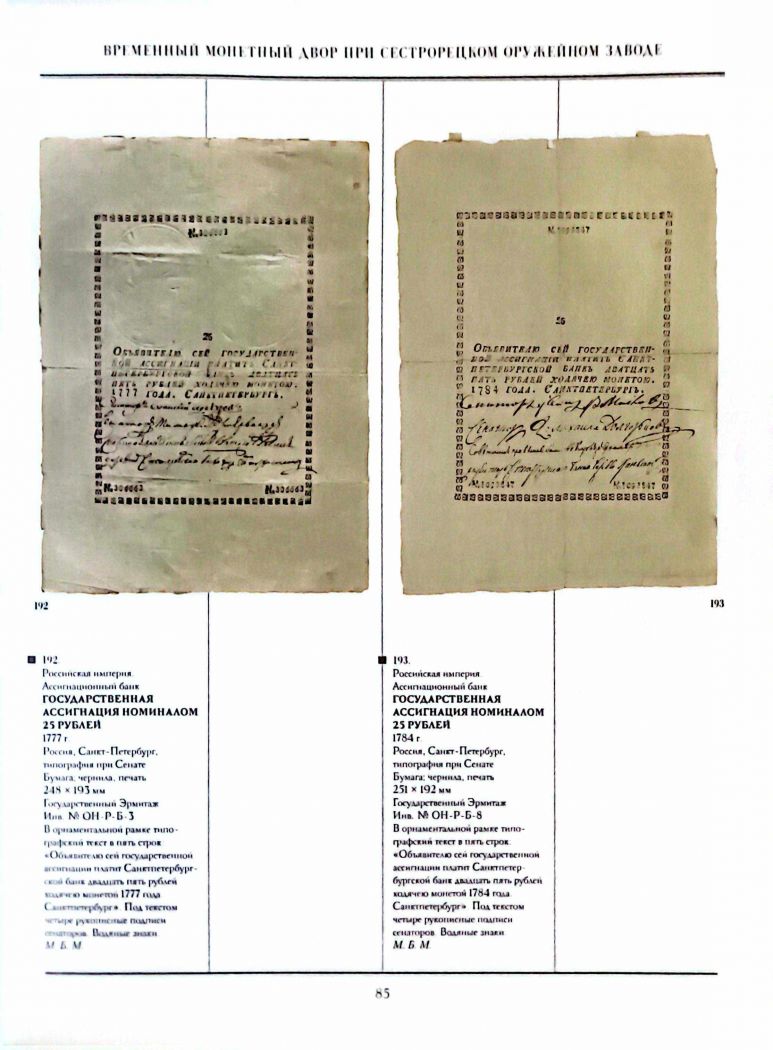 ВРЕМЕННЫЙ МОНЕТНЫЙ ДВОР ПРИ СЕСТРОРЕЦКОМ ОРУЖЕЙНОМ ЗАВОДЕ
25
ОБЪЯВИТЕЛЮ СЕЙ ГОСУДАРСТВЕН-
НОЙ АССИГНАЦІИ ПЛАТИТЪ САНКТ-
ПЕТЕРБУРГСКОЙ БАНКЪ ДВАТЦАТЬ
ПЯТЬ РУБЛЕЙ ХОДЯЧЕЮ МОНЕТОЮ.
1777 ГОДА. САНКТПЕТЕРБУРГЪ.
192
25
ОБЪЯВИТЕЛЮ СЕЙ ГОСУДАРСТВЕН-
НОЙ АССИГНАЦІИ ПЛАТИТЪ САНКТ-
ПЕТЕРБУРГСКОЙ БАНКЪ ДВАТЦАТЬ
ПЯТЬ РУБЛЕЙ ХОДЯЧЕЮ МОНЕТОЮ.
1784 ГОДА. САНКТПЕТЕРБУРГЪ.
193
192.
Российская империя.
Ассигнационный банк
ГОСУДАРСТВЕННАЯ
АССИГНАЦИЯ НОМИНАЛОМ
25 РУБЛЕЙ
1777 г.
Россия, Санкт-Петербург,
типография при Сенате
Бумага; чернила, печать
248 × 193 мм
Государственный Эрмитаж
Инв. № ОН-Р-Б-3
В орнаментальной рамке типо-
графский текст в пять строк:
«Объявителю сей государственной
ассигнации платит Санктпетербург-
ской банк двадцать пять рублей
ходячею монетой 1777 года.
Санктпетербург». Под текстом
четыре рукописные подписи
сенаторов. Водяные знаки
М. Б. М.
193.
Российская империя.
Ассигнационный банк
ГОСУДАРСТВЕННАЯ
АССИГНАЦИЯ НОМИНАЛОМ
25 РУБЛЕЙ
1784 г.
Россия, Санкт-Петербург,
типография при Сенате
Бумага; чернила, печать
251 × 192 мм
Государственный Эрмитаж
Инв. № ОН-Р-Б-8
В орнаментальной рамке типо-
графский текст в пять строк:
«Объявителю сей государственной
ассигнации платит Санктпетер-
бургской банк двадцать пять рублей
ходячею монетой 1784 года.
Санктпетербург». Под текстом
четыре рукописные подписи
сенаторов. Водяные знаки
М. Б. М.
85